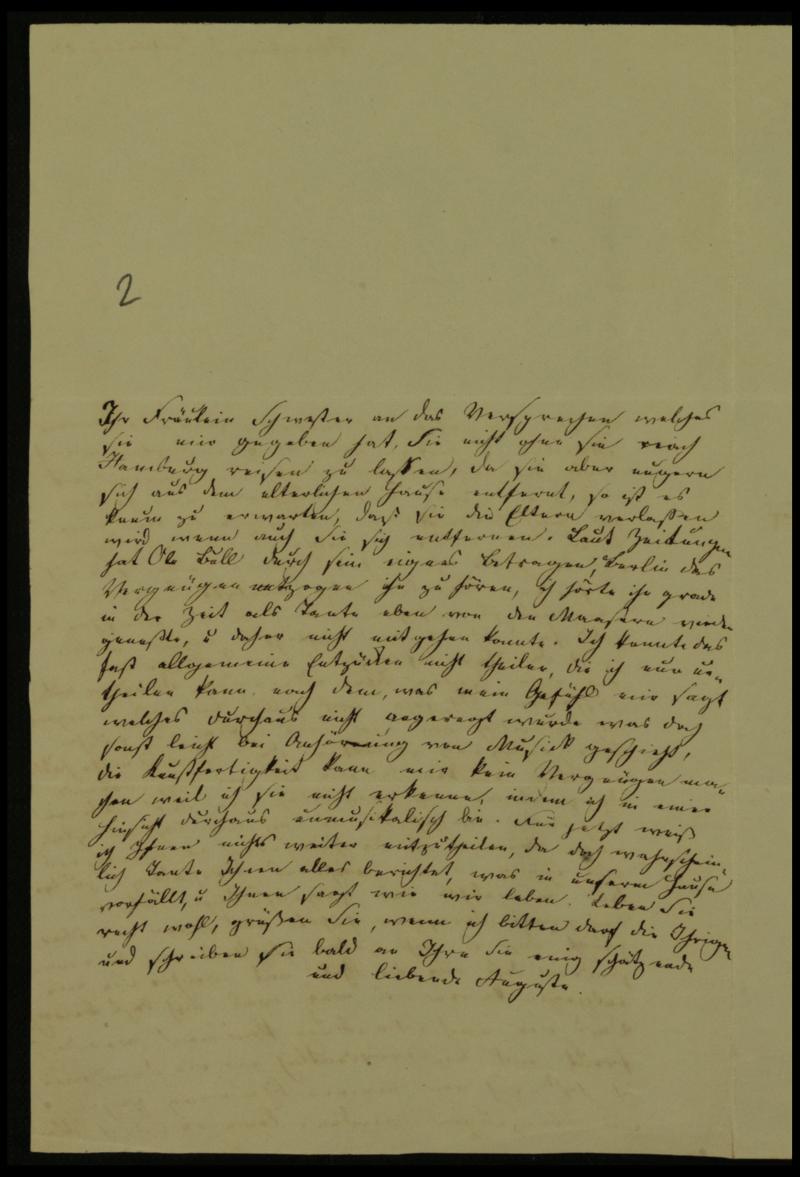 2
Ihr Fräulein Schwester an das Versprechen welches
sie mir gegeben hat, Sie nicht ohne sie nach
Hamburg reisen zu lassen, da sie aber ungern
sich aus dem älterlichen Hause entfernt, so ist es
kaum zu erwarten, daß sie die Eltern verlassen
wird wenn auch Sie sich entfernen. Laut Zeitungen
hat Ole Bull durch sein eignes Betragen, Berlin das
Vergnügen entzogen ihn zu hören, ich hörte ihn grade
in der Zeit als Tante eben von den Masern
genaßte, u daher nicht mitgehen konnte. Ich konnte das
fast allgemeine Entzücken nicht theilen, die ich nur ur-
theilen kann nach dem, was mein Gefühl mir sagt
welches durchaus nicht angeregt wurde was doch
sonst leicht bei Anhörung von Musick geschieht,
die Kunstfertigkeit kann mir kein Vergnügen ma-
chen weil ich sie nicht erkenne, indem ich in einer
Hinsicht durchaus unmusikalisch bin. Für jetzt weiß
ich Ihnen nichts weiter mitzutheilen, da doch wahrschein-
lich Tante Ihnen alles berichtet, was in unserm Hause
vorfällt, u Ihnen sagt wie wir leben. Leben Sie
recht wohl, grüßen Sie, wenn ich bitten darf die Ihrigen
und schreiben Sie bald an Ihre Sie innig schätzende
und liebende Auguste.